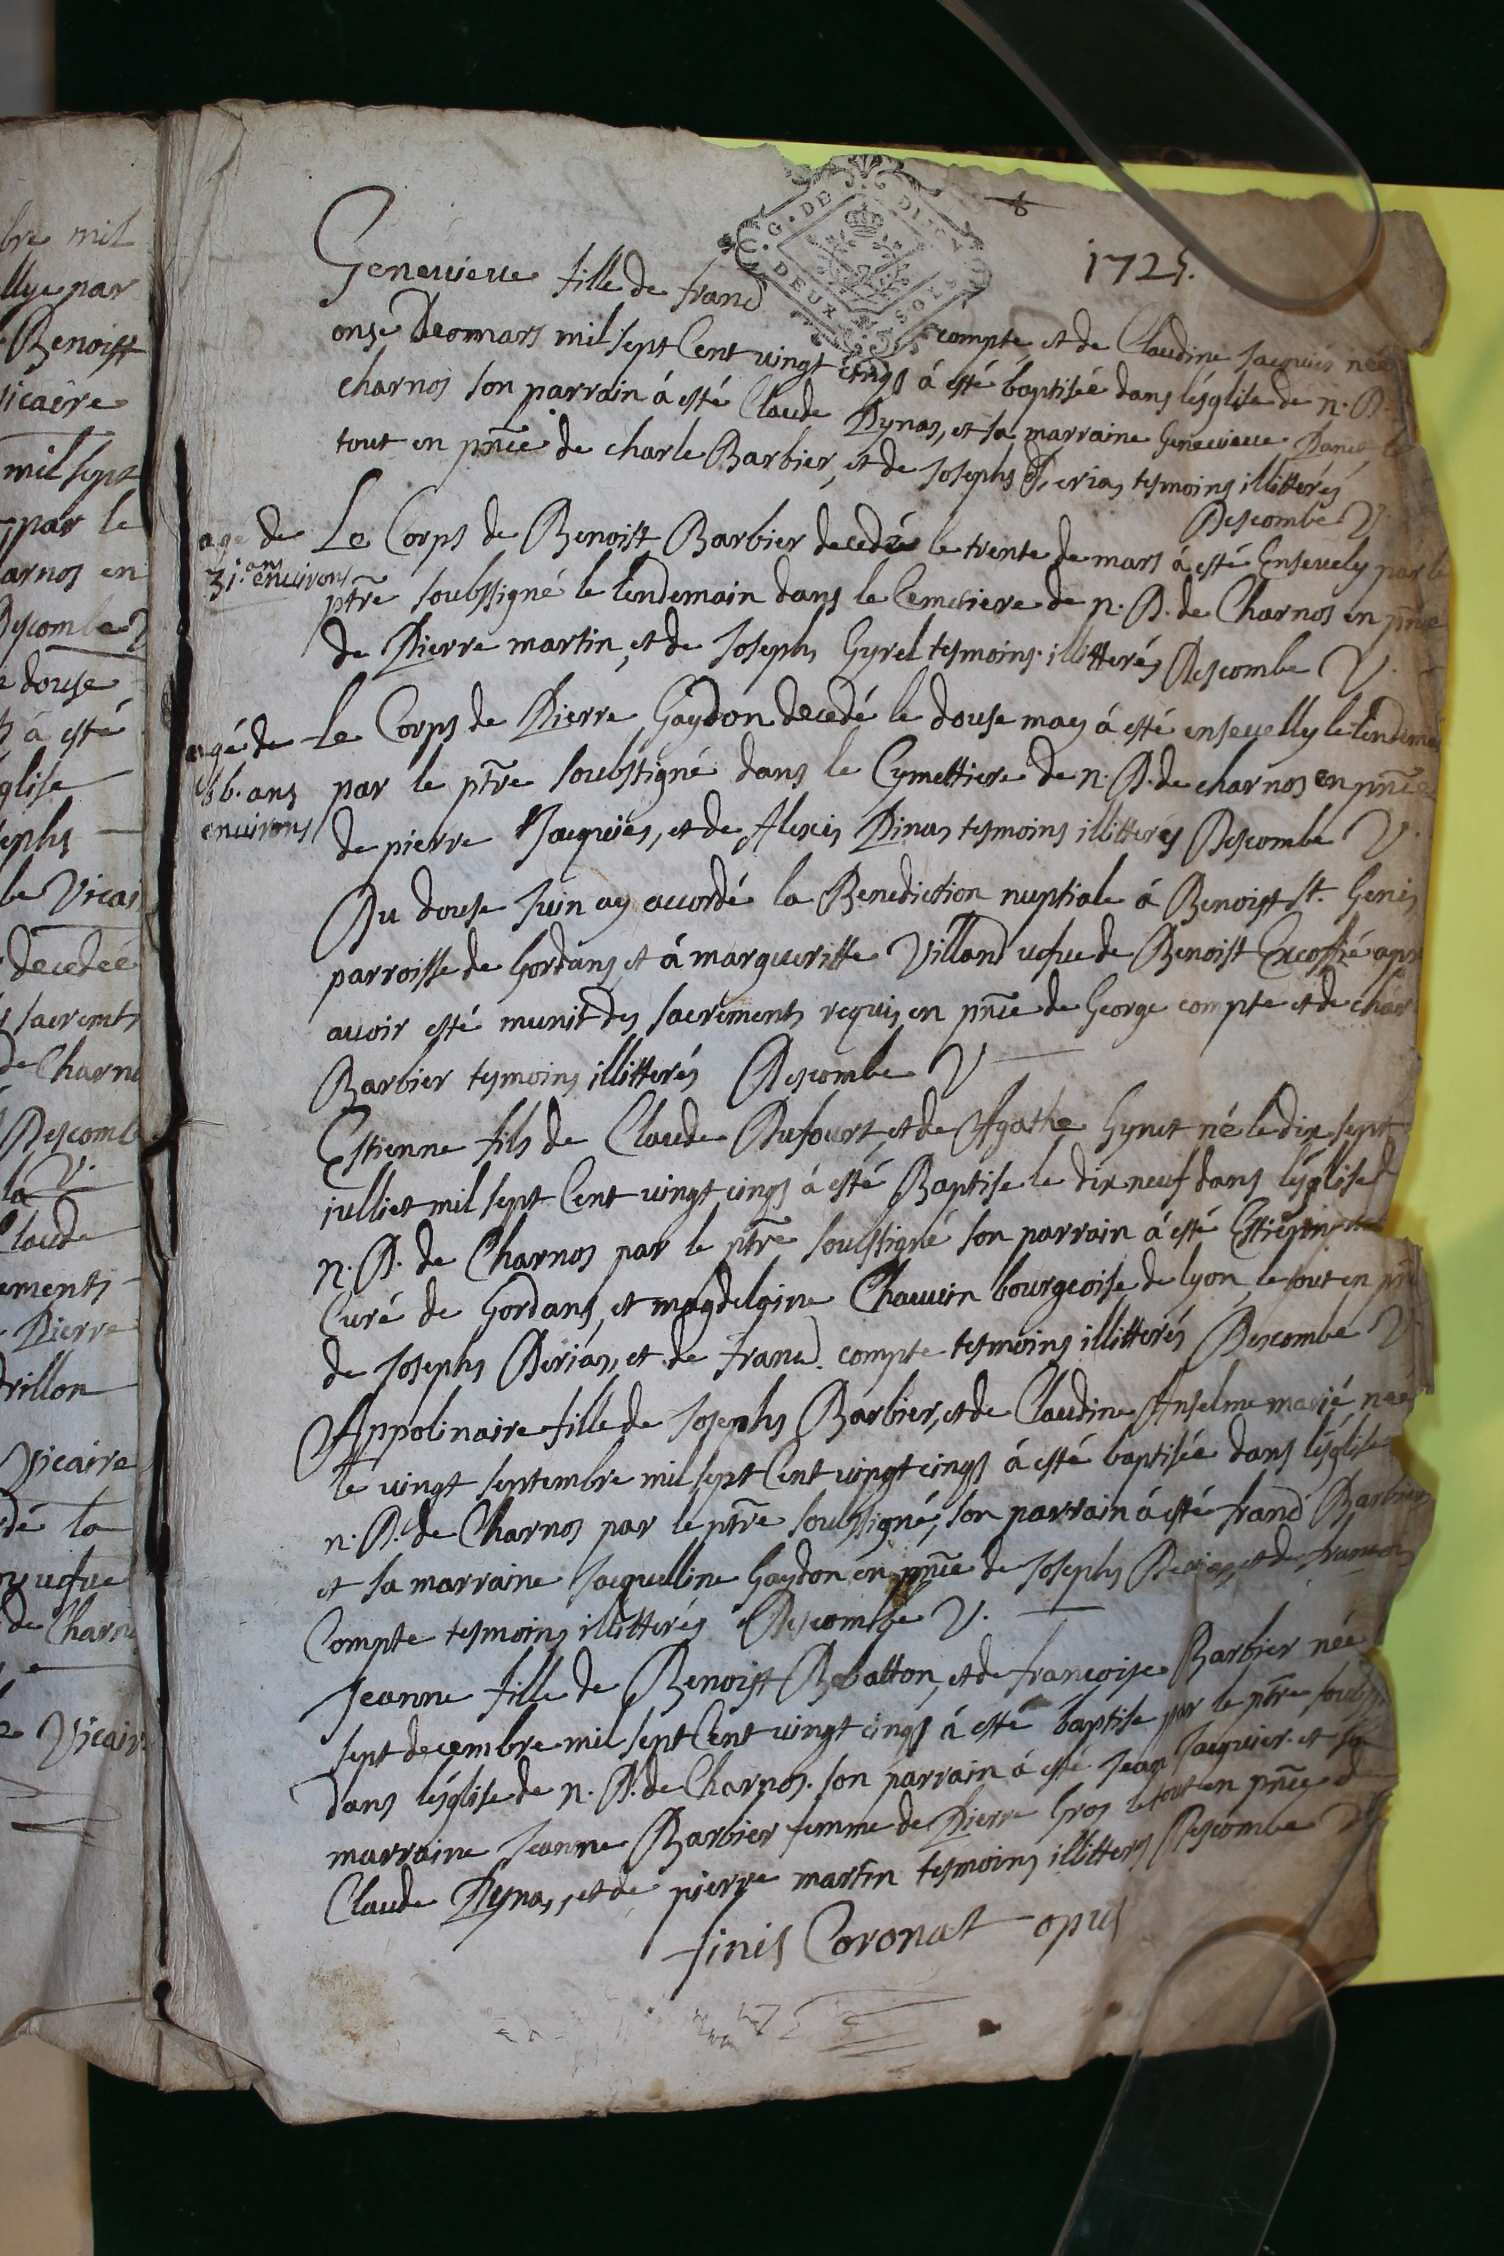 bre mil
llye par
Benoist
vicaire
mil sept
par le
arnos en
Descombe V
e douse
à esté
glise
sephs
be Vicai
decedée
sacremts
de Charno
Descomb
la V.
laude
ements
Pierre
drillon
Vicaire
dé la
vefve
de Charno
Vicair
G. DE DIJON
DEUX SOLS
1725.
Genevieve fille de Franc compte, et de Claudine Jacquier née
onse de mars mil sept Cent vingt cinqs á esté baptisée dans lésglise de N. D.
charnos son parrain á esté Claude Pynas, et sa marraine Genevieve Panet le
tout en pñce de charle Barbier, et de Josephs Derias tesmoins illitterés
Descombe V.
age de
31. ans environs
Le Corps de Benoist Barbier decedé le trente de mars á esté Ensevely par le
ptre soubssigné le lendemain dans le Cemetiere de n. D. de Charnos en pñce
de Pierre martin, et de Josephs Gyrel tesmoins illitterés Descombe V.
agé de
66. ans
environs
Le Corps de Pierre Gaydon decedé le douse may á esté ensevelly le lendemai
par le ptre soubssigné dans le Cymettiere de n. D. de charnos en pñce
de pierre Jacquier, et de Alexis Pinas tesmoins illitterés Descombe V.
Du douse Juin ay accordé la Benediction nuptiale á Benoist St. Genis
parroisse de Gordans, et á margueritte Villand vefve de Benoist Excoffié apr
avoir esté munit des sacrements requis en pñce de George compte et de char
Barbier tesmoins illitterés Descombe V
Estienne fils de Claude Dufourt, et de Agathe Gynet né le dix sept
julliet mil sept Cent vingt cinqs á esté Baptise le dix neuf dans lésglise d
n. D. de Charnos par le ptre soussigné son parrain á esté Estienne
Curé de Gordans, et magdelaine Chauvin bourgeoise de lyon, le tout en pñc
de Josephs Derias, et de Franc. compte tesmoins illitterés Descombe V
Appolinaire fille de Josephs Barbier, et de Claudine Anselme marié, née
le vingt septembre mil sept Cent vingt cinqs á esté baptisée dans lésglise
n. D. de Charnos par le ptre soubssigné, son parrain á esté franc Barbier
et sa marraine Jacquelline Gaydon en pñce de Josephs Derias, et de francois
Compte tesmoins illitterés Descombe V.
Jeanne fille de Benoist Babatton, et de francoise Barbier née
sept decembre mil sept Cent vingt cinqs á esté baptise par le ptre soubs
dans lésglise de n. D. de Charnos. son parrain á esté Jean Jacquier et sa
marraine Jeanne Barbier femme de Pierre Gros le tout en pñce d
Claude Pynas, et de pierre martin tesmoins illitterés Descombe V
finis Coronat opus